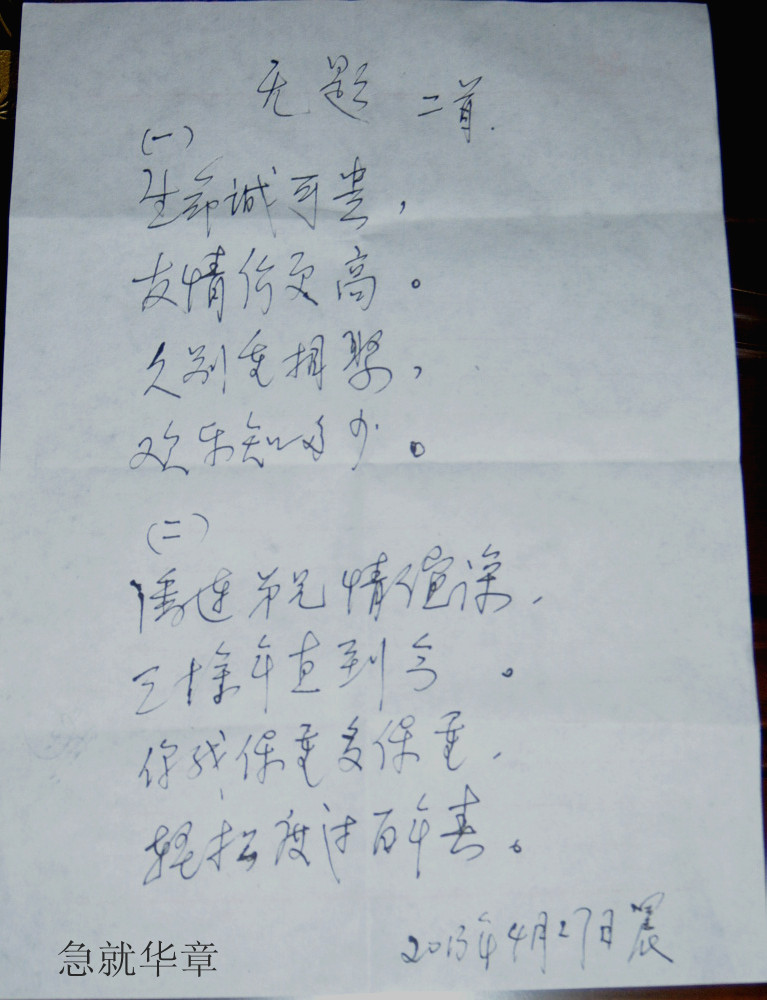 无题 二首.
(一)
生命诚可贵，
友情价更高。
久别重相聚，
欢乐知多少。
(二)
连弟兄情谊深，
三十余年直到今。
你我保重多保重，
轻松度过百年春。
2013年4月27日晨
急就华章